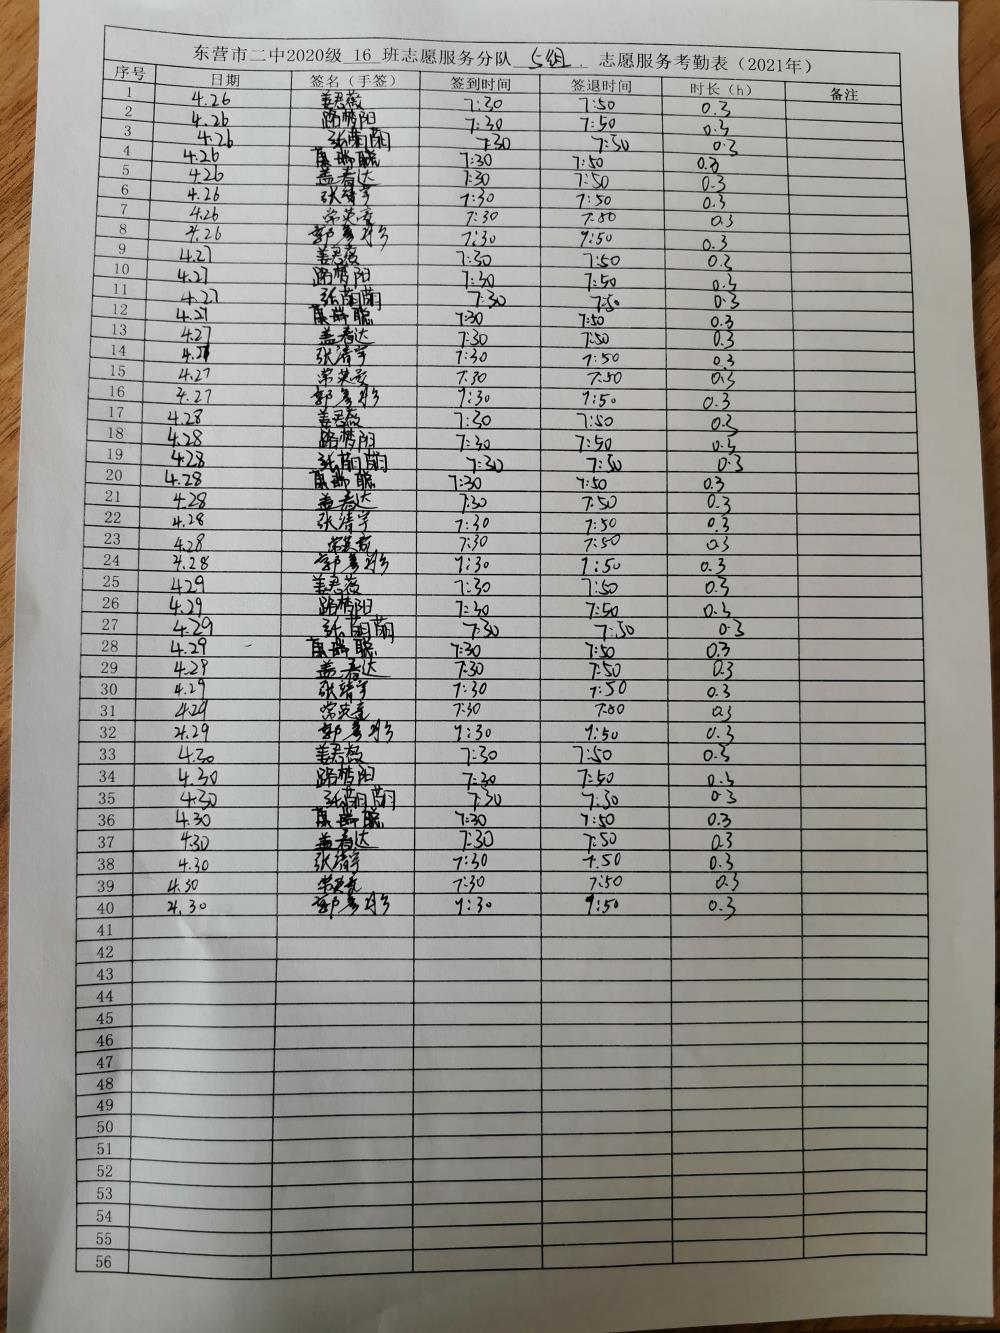 东营市二中2020级 16 班志愿服务分队 5组 志愿服务考勤表（2021年）
序号 日期 签名（手签） 签到时间 签退时间 时长（h） 备注
1 4.26 姜君薇 7:30 7:50 0.3
2 4.26 路梦阳 7:30 7:50 0.3
3 4.26 张茼茼 7:30 7:50 0.3
4 4.26 聪 7:30 7:50 0.3
5 4.26 盖春达 7:30 7:50 0.3
6 4.26 张靖宇 7:30 7:50 0.3
7 4.26 常英 7:30 7:50 0.3
8 4.26 郭彦彤 7:30 7:50 0.3
9 4.27 姜君薇 7:30 7:50 0.3
10 4.27 路梦阳 7:30 7:50 0.3
11 4.27 张茼茼 7:30 7:50 0.3
12 4.27 聪 7:30 7:50 0.3
13 4.27 盖春达 7:30 7:50 0.3
14 4.27 张靖宇 7:30 7:50 0.3
15 4.27 常英 7:30 7:50 0.3
16 4.27 郭彦彤 7:30 7:50 0.3
17 4.28 姜君薇 7:30 7:50 0.3
18 4.28 路梦阳 7:30 7:50 0.3
19 4.28 张茼茼 7:30 7:50 0.3
20 4.28 聪 7:30 7:50 0.3
21 4.28 盖春达 7:30 7:50 0.3
22 4.28 张靖宇 7:30 7:50 0.3
23 4.28 常英 7:30 7:50 0.3
24 4.28 郭彦彤 7:30 7:50 0.3
25 4.29 姜君薇 7:30 7:50 0.3
26 4.29 路梦阳 7:30 7:50 0.3
27 4.29 张茼茼 7:30 7:50 0.3
28 4.29 聪 7:30 7:50 0.3
29 4.29 盖春达 7:30 7:50 0.3
30 4.29 张靖宇 7:30 7:50 0.3
31 4.29 常英 7:30 7:50 0.3
32 4.29 郭彦彤 7:30 7:50 0.3
33 4.30 姜君薇 7:30 7:50 0.3
34 4.30 路梦阳 7:30 7:50 0.3
35 4.30 张茼茼 7:30 7:50 0.3
36 4.30 聪 7:30 7:50 0.3
37 4.30 盖春达 7:30 7:50 0.3
38 4.30 张靖宇 7:30 7:50 0.3
39 4.30 常英 7:30 7:50 0.3
40 4.30 郭彦彤 7:30 7:50 0.3
41
42
43
44
45
46
47
48
49
50
51
52
53
54
55
56